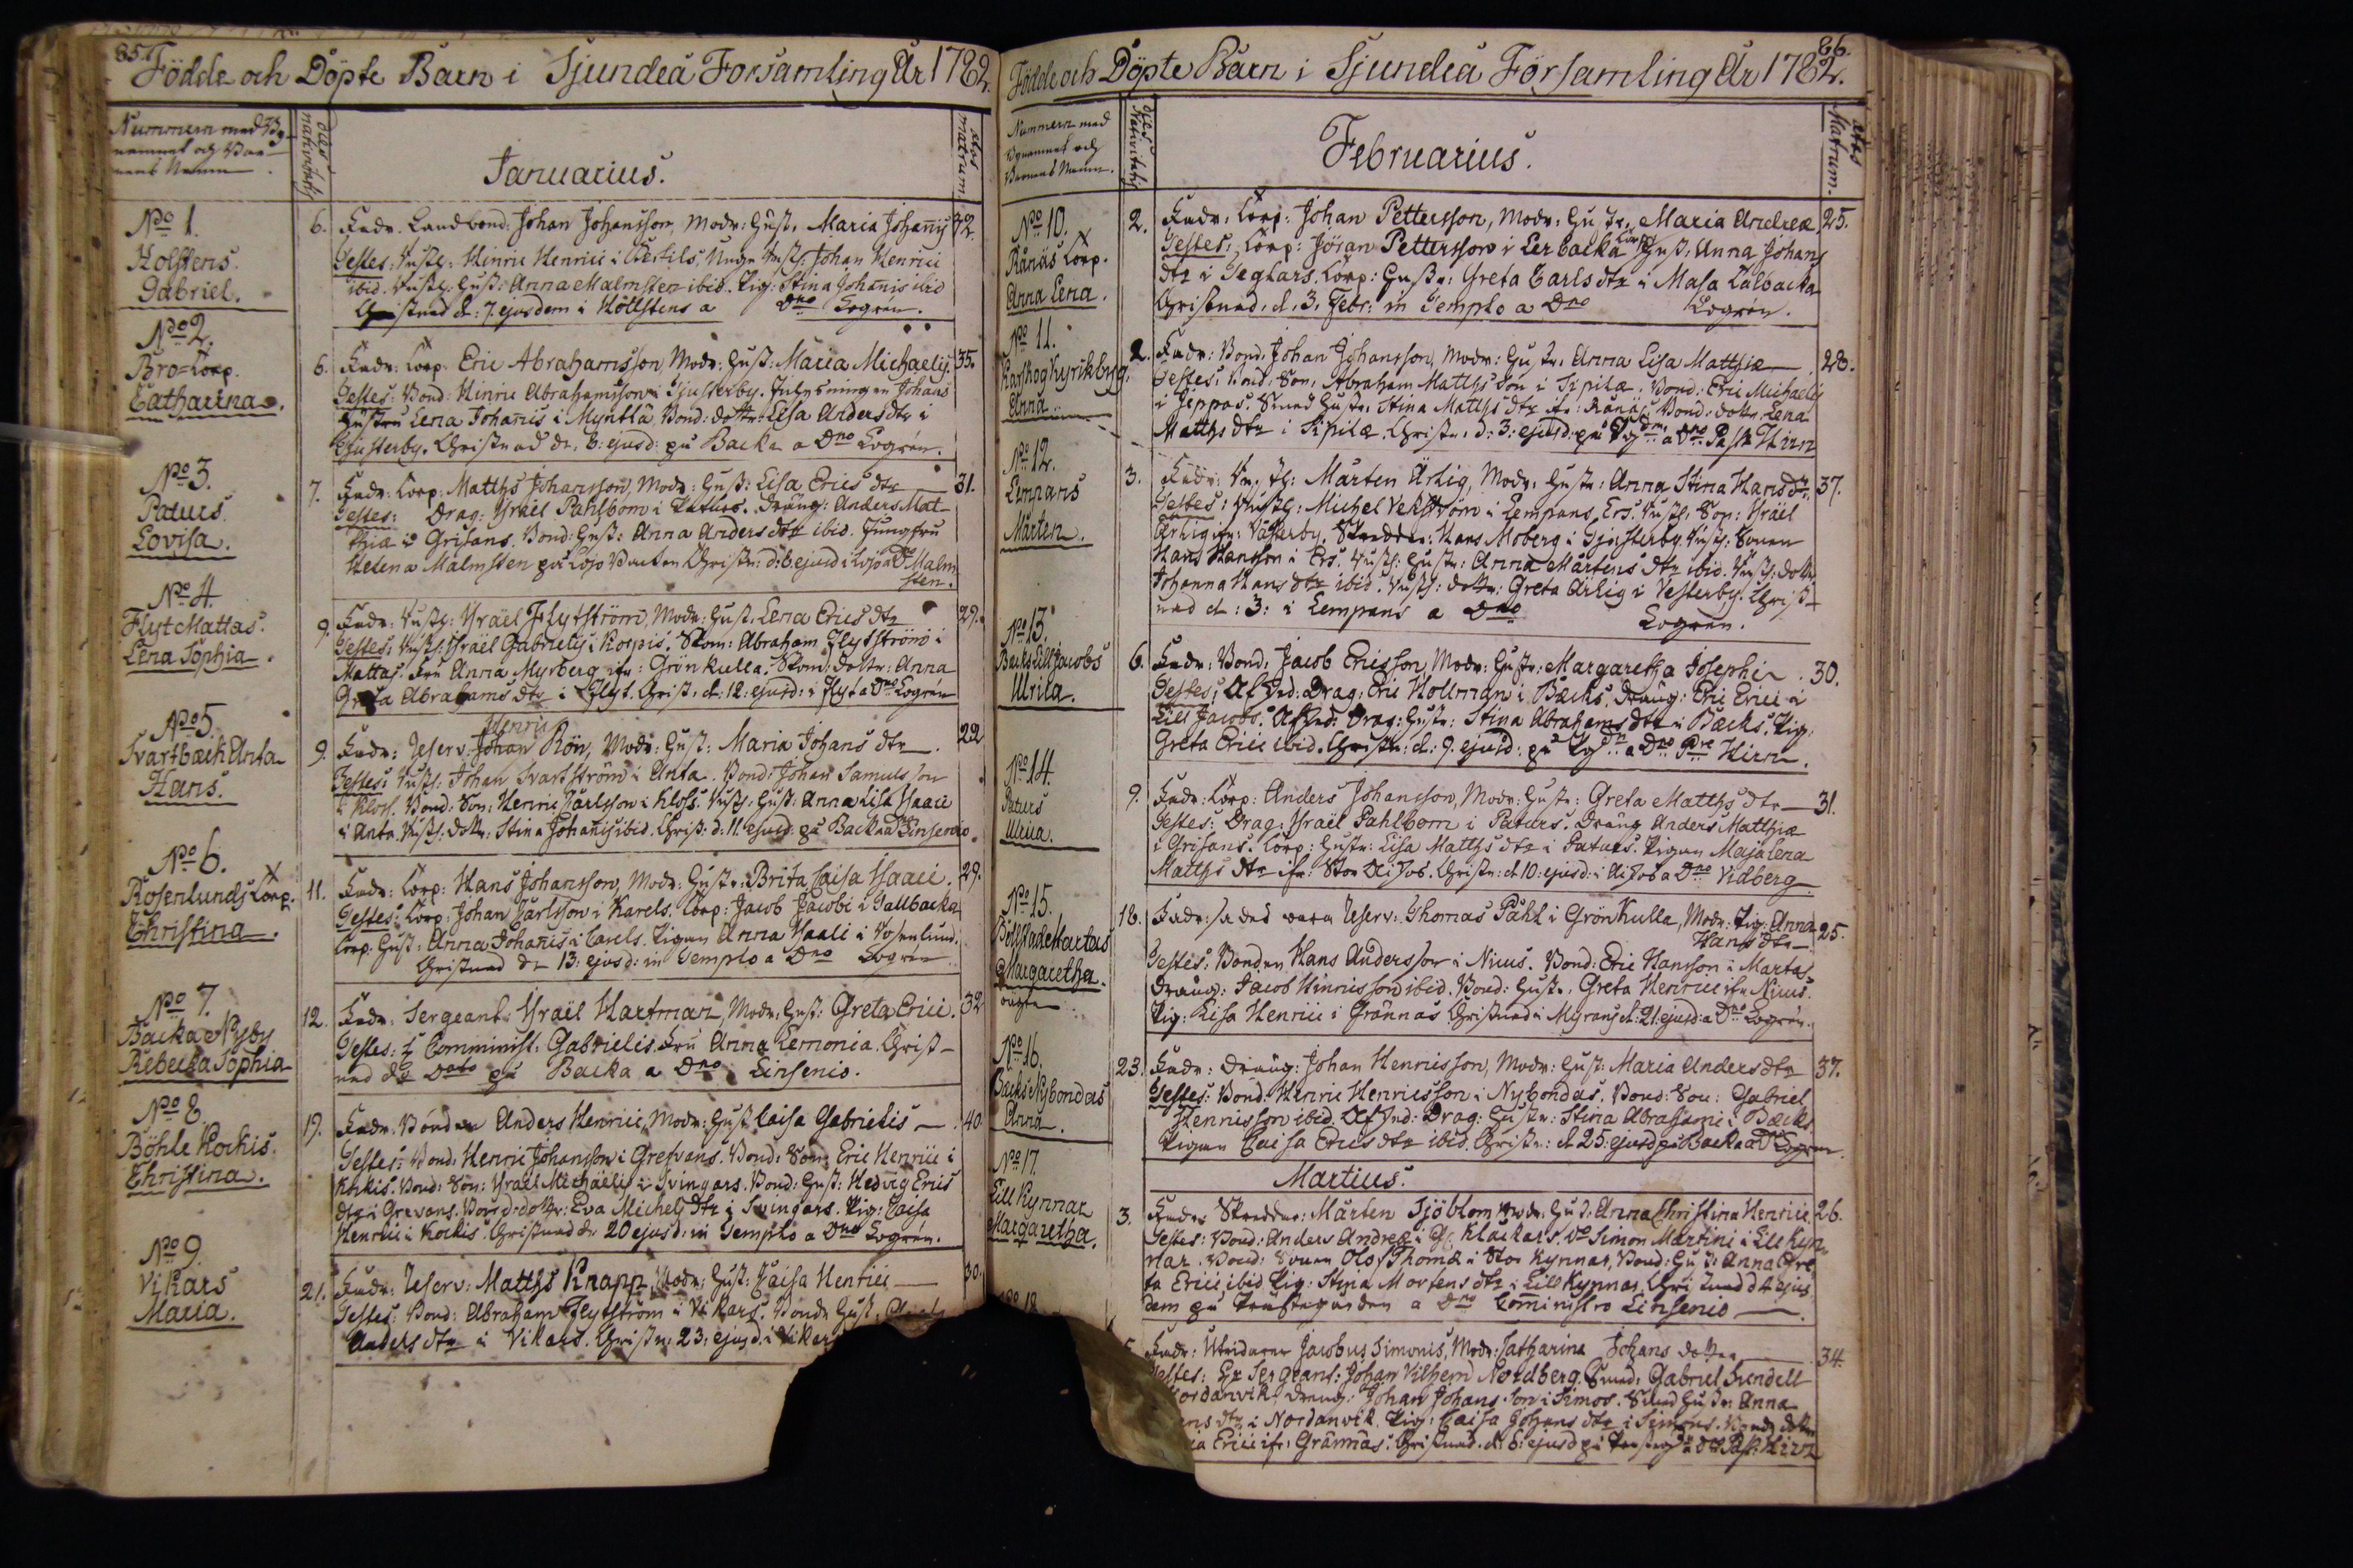 85.
Födde och Döpte Barn i Sjundeå Forsamling År 1782.
Nummern med By-
namnet och Bar-
nens Namn.
dies nativitatis
Januarius.
ætas matrum.
No 1.
Holstens.
Gabriel.
6. Fadr. Landbond: Johan Johansson, Modr: Hust. Maria Johanis 32.
Testes: Hinric Henrici i Johan Henrici
ibid. Hust: Anna Malmsten ibid. Pig: Stina Johanis ibid
Christnad d: 7. ejusdem i Hollstens a Dno Logrén.
No 2.
Bro=Torp.
Catharina.
6. Fadr: Torp. Eric Abrahamsson, Modr: Hust: Maria Michaelis. 35.
Testes: Bond: Hinric Abrahamsson i Gjusterby. Johans
Hustru Lena Johanis i Myntlä, Bond: dottr: Lisa Anders dtr i
Gjusterby. Christnad d. 8. ejusd: på Backa a Dno Logrén.
No 3.
Paturs.
Lovisa.
7. Fadr: Torp: Matths Johansson, Modr: Hust: Lisa Erics dtr 31.
Testes: Drag: Israel Pahlbom i Paturs. Dräng: Anders Mat-
thiæ i Grisans. Bond: Hust: Anna Anders dtr ibid. Jungfru
Helena Malmsten på Lojo Christn: d: 8. ejusd i Lojo a Dno Malm
sten.
No 4.
Flyt Mattas.
Lena Sophia.
9. Fadr: Israël Flytström, Modr: Hust. Lena Erics dtr 29.
Testes: Israël Gabrielis i Korpis. Abraham Flytström i
Mattas. Fru Anna Myrberg ifr: Grönkulla. dottr: Anna
Greta Abrahams dtr i Flyt. Christ. d: 12: ejusd: i Flyt a Dno Logrén
No 5.
Svartbäck Anta
Hans.
Henric
9. Fadr: Reserv: Johan Rön, Modr: Hust: Maria Johans dtr. 22
Testes: Johan Svartström i Anta. Bond: Johan Samulsson
i Kloss. Bond: Son: Henric Carlsson i Kloss. Hust: Anna Lisa Isaaci
i Anta. dottr: Stina Johanis ibid. Christ: d: 11. ejusd: på Backa a Dno Linsenio.
No 6.
Rosenlunds Torp.
Christina.
11. Fadr: Torp: Hans Johansson, Modr: Hustr: Brita Caisa Isaaci. 29.
Testes: Torp: Johan Carlsson i Karels. Torp: Jacob Jacobi i Tallbacka
Torp: Hust: Anna Johanis i Carels. Pigan Anna Isaaci i Rosenlund.
Christnad d. 13: ejusd: in Templo a Dno Logrén.
No 7.
Backa Nyby
Rebecka Sophia
12. Fadr: Sergeant: Israël Hartman, Modr: Hust: Greta Erici. 32
Testes: Comminist: Gabrielis. Fru Anna Lemonia. Christ-
nad d. Dato på Backa a Dno Linsenio.
No 8.
Böhle Kockis.
Christina.
19. Fadr: Bonden Anders Henrici, Modr: Hust: Caisa Gabrielis 40.
Testes: Bond: Henric Johansson i Grevans. Bond: Son: Eric Henrici i
Kockis. Bond: Son: Israel Michaelis i Svingars. Bond: Hust: Hedvig Erics
dtr i Grevans. Bond: dottr: Eva Michels dtr i Svingars. Pig: Caisa
Henrici i Kockis. Christnad d. 20 ejusd: in Templo a Dno Logrén.
No 9.
Vikars
Maria.
21. Fadr: Reserv: Matths Knapp, Modr: Hust: Caisa Henrici 30.
Testes: Bond: Abraham Flytström i Vikars. Bond: Hust.
Anders dtr i Vikars. Christn: 23: ejusd: i Vikar
86.
Födde och Döpte Barn i Sjundeå Församling År 1782.
Nummern med
Bynamnet och
Barnens Namn.
dies Nativitatis
Februarius.
ætas Matrum.
No 10.
Rånäs Torp.
Anna Lena.
2. Fadr: Torp: Johan Pettersson, Modr: Hustr. Maria Andreæ. 25.
Testes: Torp: Jöran Pettersson i Lerbacka Torp, Hust: Anna Johans
dtr i Teglars. Torp: Hustr: Greta Carls dtr i Masa Talbacka
Christnad. d. 3. Febr: in Templo a Dno Logrén.
No 11.
Karskog Kyrikby
Anna
2. Fadr: Bond: Johan Johansson, Modr: Hustr. Anna Lisa Matthiæ 28.
Testes: Bond: Son: Abraham Matthsson i Sipilæ. Bond: Eric Michaelis
i Jeppas. Smed Hustr. Stina Matths dtr ifr: Rånäs. Bond: dottr. Lena
Matths dtr i Sipilæ. Christn: d: 3: ejusd: på Pgdn a Dno Past: Hirn
No 12.
Lempans
Mårten.
3. Fadr: Mårten Ärlig, Modr: Hustr: Anna Stina Hansdtr 37.
Testes: Michel Vekström i Lempans, Ers: Son: Israël
Ärlig ifr: Västerby. Skredder: Hans Moberg i Gjusterby. Sonen
Hans Hansson i Ers. Hustr: Anna Mårtens dtr ibid. dottr
Johanna Hans dtr ibid. dottr: Greta Ärlig i Vesterby. Christ-
nad d: 3: i Lempans a Dno Logrén.
No 13.
Bäcks Lill Jacobs
Ulrica.
6. Fadr: Bond: Jacob Ericsson, Modr: Hustr: Margaretha Josephi. 30.
Testes: Afskd: Drag: Eric Hollman i Bäcks. Dräng: Eric Erici i
Lill Jacobs. Afskd: Drag: Hustr: Stina Abrahams dtr i Bäcks. Pig:
Greta Erici ibid. Christn: d: 9. ejusd: på Pgdn a Dno Pre Hirn.
No 14.
Paturs
Ulrica.
9. Fadr: Torp: Anders Johansson, Modr: Hustr: Greta Matths dtr 31.
Testes: Drag: Israël Pahlbom i Paturs. Dräng Anders Matthiæ
i Grisans. Torp: Hustr: Lisa Matths dtr i Paturs. Pigan Maja Lena
Matths dtr ifr: Stor Christn: d 10. ejusd: i a Dno Vidberg
No 15.
Böllstad Martas
Margaretha.
oägta
18. Fadr: sades vara Reserv: Thomas Påhl i Grönkulla, Modr: Pig: Anna
Hans dtr 25.
Testes: Bonden Hans Andersson i Nicus. Bond: Eric Hansson i Martas
Dräng: Jacob Hinricsson ibid. Bond: Hustr. Greta Henrici ifr Nicus.
Pig: Lisa Henrici i Grännäs Christnad i Myrans d: 21. ejusd: a Dno Logrén.
No 16.
Bäcks Nybondas
Anna.
23. Fadr: Dräng: Johan Henricsson, Modr: Hust: Maria Andersdtr 37.
Testes: Bond: Henric Henricsson i Nybondas. Bond: Son: Gabriel
Henricsson ibid. Afskd: Drag: Hustr: Stina Abrahami i Bäcks
Pigan Caisa Erics dtr ibid. Christn: d 25: ejusd på Backa a Dno Logren.
Martius.
No 17.
Lill Kynnar
Margaretha.
3. Fadr: Skredder: Mårten Sjöblom Modr: Hust: Anna Christina Henrici. 26.
Testes: Bond: Anders Andreæ i Klackars. Do Simon Martini i Lill Kyn-
nar. Bond: Sonen Olof Thomæ i Stor Kynnar, Bond: Hust: Anna Gre
ta Erici ibid. Pig: Stina Mortens dtr i Lill Kynnar. Christnad d 4 ejus
dem på Prästegården a Dno Comministro Linsenio.
No 18.
5. Fadr: Utridaren Jacobus Simonis, Modr: Catharina Johans dotter 34.
Testes: Ex Sergeant: Johan Vilhem Nordberg. Smed: Gabriel Sundell
Nordanvik, dräng: Johan Johans son i Simos. Smed Hustr: Anna
ans dtr i Nordanvik. Pig: Caisa Johans dtr i Simons. Bond: dottr
ia Erici ifr: Grännäs. Christnad. d: 6: ejusd på Prestegdn a Dno Past: Hirn